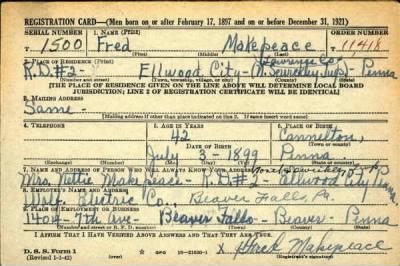 REGISTRATION CARD—(Men born on or after February 17, 1897 and on or before December 31, 1921)
SERIAL NUMBER 1. NAME (Print) ORDER NUMBER
T 1500 Fred Makepeace 11418
(First) (Middle) (Last)
2. PLACE OF RESIDENCE (Print) Lawrence Co.
R.D.#2- Ellwood City- (N. Sewickley Twp)- Penna
(Number and street) (Town, township, village, or city) (County) (State)
[THE PLACE OF RESIDENCE GIVEN ON THE LINE ABOVE WILL DETERMINE LOCAL BOARD
JURISDICTION; LINE 2 OF REGISTRATION CERTIFICATE WILL BE IDENTICAL]
3. MAILING ADDRESS
Same-
(Mailing address if other than place indicated on line 2. If same insert word same)
4. TELEPHONE 5. AGE IN YEARS 6. PLACE OF BIRTH
42 Cannelton,
DATE OF BIRTH (Town or county)
July 3- 1899 Penna
(Exchange) (Number) (Mo.) (Day) (Yr.) (State or country)
7. NAME AND ADDRESS OF PERSON WHO WILL ALWAYS KNOW YOUR ADDRESS
Mrs. Makepeace- R.D.#2- Ellwood City Penna
8. EMPLOYER'S NAME AND ADDRESS
Electric Co., Beaver Falls, Pa.
9. PLACE OF EMPLOYMENT OR BUSINESS
1404-7th Ave- Beaver Falls- Beaver- Penna
(Number and street or R. F. D. number) (Town) (County) (State)
I AFFIRM THAT I HAVE VERIFIED ABOVE ANSWERS AND THAT THEY ARE TRUE.
D. S. S. Form 1
(Revised 1-1-42) GPO 16-21630-1 x Makepeace